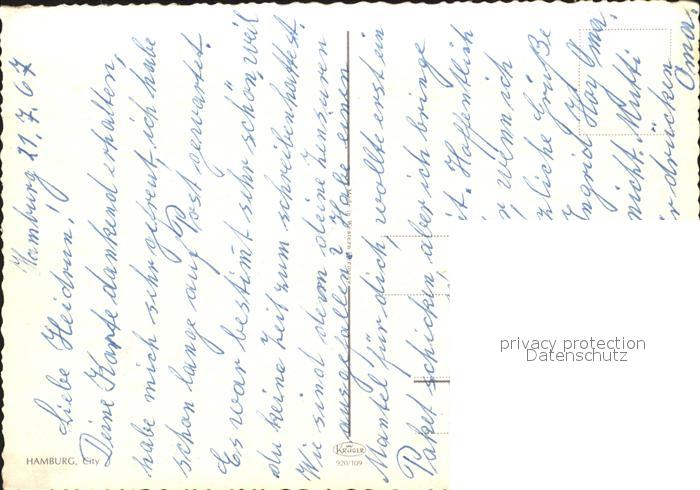 Hamburg 21.7.67
Liebe Heidrun!
Deine Karte dankend erhalten,
habe mich sehr gefreut, ich habe
schon lange auf Post gewartet.
Es war bestimt sehr schön, weil
du keine Zeit zum schreiben hattest.
Wie sind denn deine Zensuren
ausgefallen? Habe einen
Mantel für dich, wollte erst ein
Paket schicken, aber ich bringe
it. Hoffentlich
wenn ich
zliche Grüße
Ingrid Oma,
nicht. Mutti
drücken
Oma.
HAMBURG, City
KRÜGER
920/109
privacy protection
Datenschutz